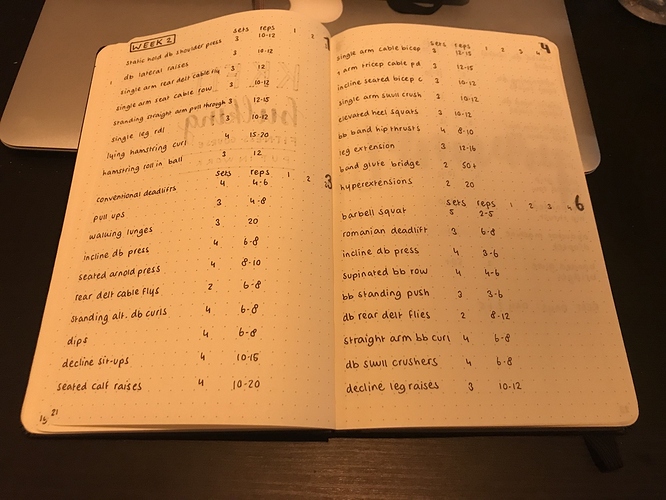 WEEK 2 sets reps 1 2
static hold db shoulder press 3 10-12
db lateral raises 3 10-12
single arm rear delt cable fly 3 12
single arm seat cable row 3 10-12
standing straight arm pull through 3 12-15
single leg rdl 3 10-12
lying hamstring curl 4 15-20
hamstring roll in ball 3 12
sets reps 1 2 3
conventional deadlifts 4 4-6
pull ups 3 4-8
walking lunges 3 20
incline db press 4 6-8
seated arnold press 4 8-10
rear delt cable flys 2 6-8
standing alt. db curls 4 6-8
dips 4 6-8
decline sit-ups 4 10-15
seated calf raises 4 10-20
21
sets reps 1 2 3 4
single arm cable bicep 3 12-15
1 arm tricep cable pd 3 12-15
incline seated bicep c 3 10-12
single arm skull crush 3 10-12
elevated heel squats 3 10-12
bb band hip thrusts 4 8-10
leg extension 3 12-16
band glute bridge 2 50+
hyperextensions 2 20
sets reps 1 2 3 4 6
barbell squat 5 2-5
romanian deadlift 3 6-8
incline db press 4 3-6
supinated bb row 4 4-6
bb standing push 3 3-6
db rear delt flies 2 8-12
straight arm bb curl 4 6-8
db skull crushers 4 6-8
decline leg raises 3 10-12